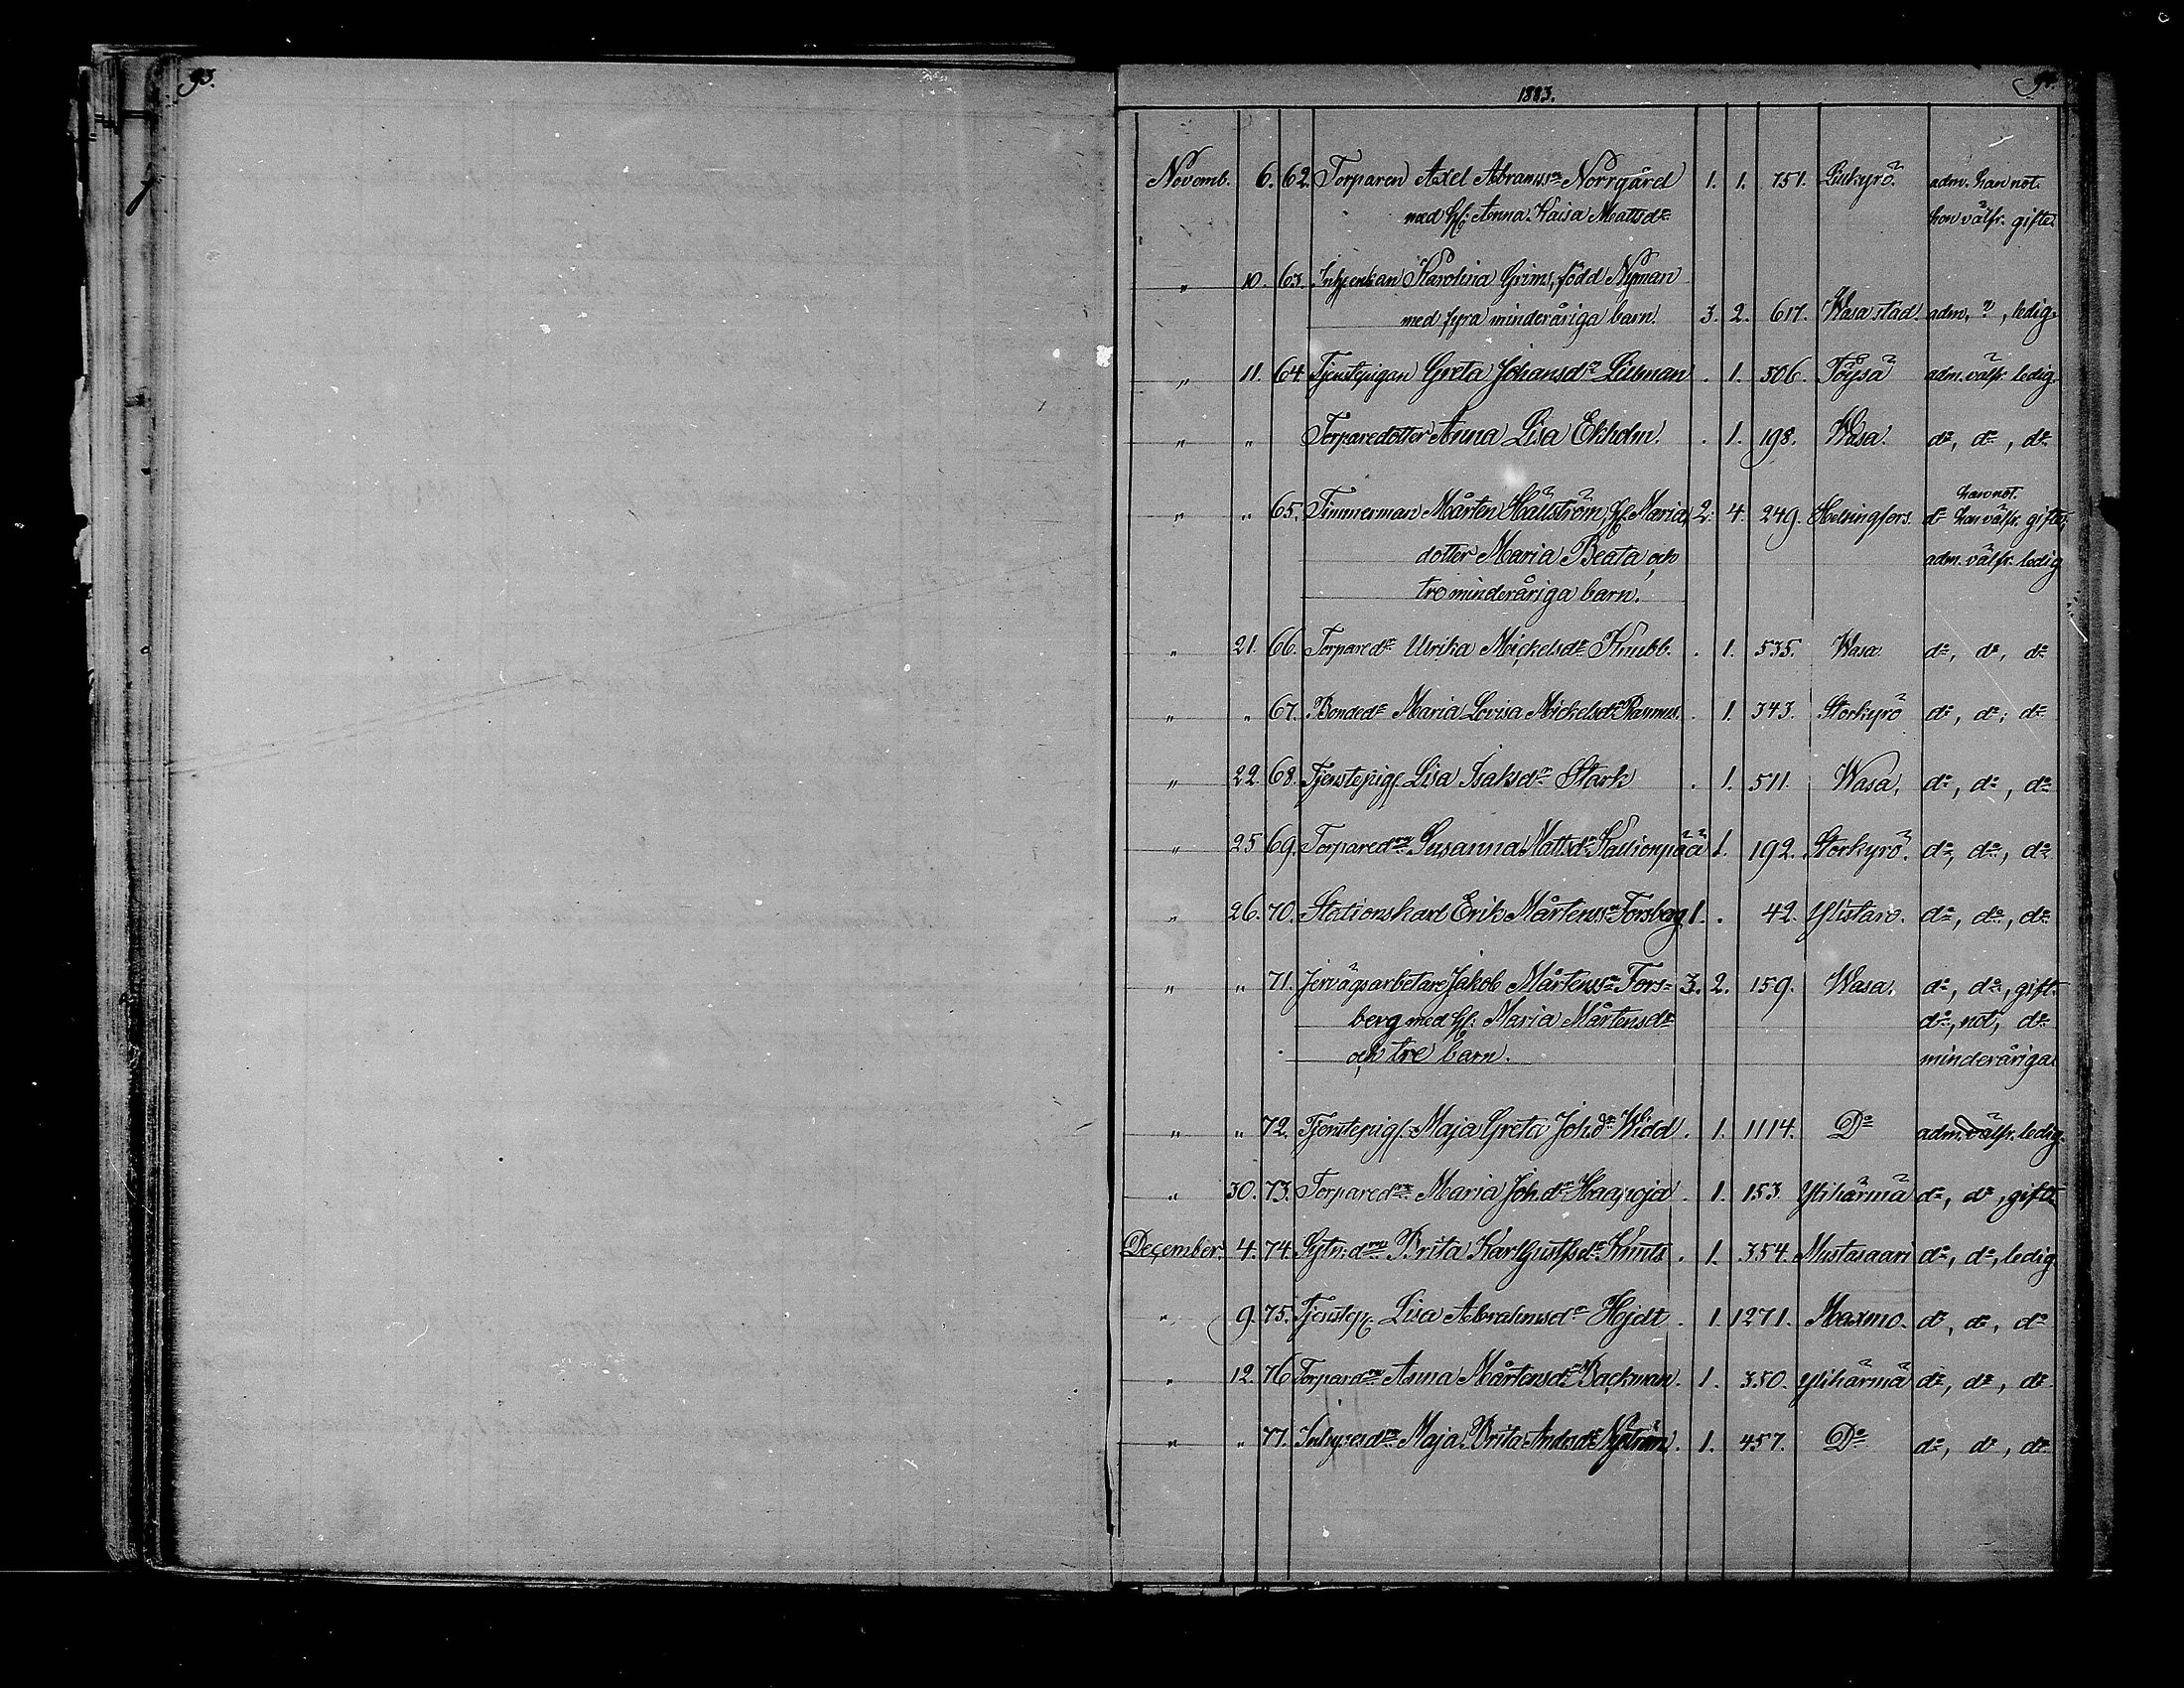 93.
94.
1883.
Novemb. 6. 62. Torparen Axel Abramss:n Norrgård 1. 1. 751. Lillkyrö. adm. han not.
med h: Anna Kaisa Mattsd:r hon välfr. gifta
" 10. 63. Inhysenkan Karolina Grims, född Nyman
med fyra minderåriga barn. 3. 2. 617. Wasa stad. adm, ", ledig.
" 11. 64. Tjenstepigan Greta Johansd:r Lillman . 1. 506. Töysä adm. välfr. ledig.
" " Torparedotter Anna Lisa Ekholm. . 1. 198. Wasa. d:o, d:o, d:o
han not.
" " 65. Timmerman Mårten Hällström, h: Maria, 2. 4. 249. Helsingfors. d:o hon välfr. gifta,
dotter Maria Beata och adm. välfr. ledig
tre minderåriga barn.
" 21. 66. Torpared:r Ulrika Mickelsd:r Knubb. . 1. 535. Wasa. d:o, d:o, d:o
" " 67. Bonded:r Maria Lovisa Mickelsd:r Rasmus. . 1. 343. Storkyrö d:o, d:o, d:o
" 22. 68. Tjenstepig. Lisa Isaksd:r Stark . 1. 511. Wasa. d:o, d:o, d:o
" 25 69. Torpared:ren Susanna Mattsd:r Kallionpää 1. 192. Storkyrö. d:o, d:o, d:o
" 26. 70. Stationskarl Erik Mårtenss:n Forsberg 1. . 42. Ylistaro. d:o, d:o, d:o
" " 71. Jervägsarbetare Jakob Mårtenss:n Fors= 3. 2. 159. Wasa. d:o, d:o, gift.
berg med h: Maria Mårtensd:r d:o, not, d:o
och tre barn. minderåriga
" " 72. Tjenstepig. Maja Greta Joh.d:r Widd . 1. 1114. D:o adm. välfr. ledig.
" 30. 73. Torpared:ren Maria Joh.d:r Haapoja . 1. 153. Ylihärmä d:o, d:o, gift
December. 4. 74. Sytn:d:ren Brita Karl Gustfsd:r Knuts . 1. 354. Mustasaari d:o, d:o, ledig
" 9. 75. Tjenstep. Lisa Abrahmsd:r Hejdt . 1. 1271. Maxmo. d:o, d:o, d:o
" 12. 76 Torpard:ren Anna Mårtensd:r Backman. 1. 350. Ylihärmä d:o, d:o, d:o
" " 77. Inhysesd:ren Maja Brita Andersd:r Nyström. 1. 457. D:o d:o, d:o, d:o